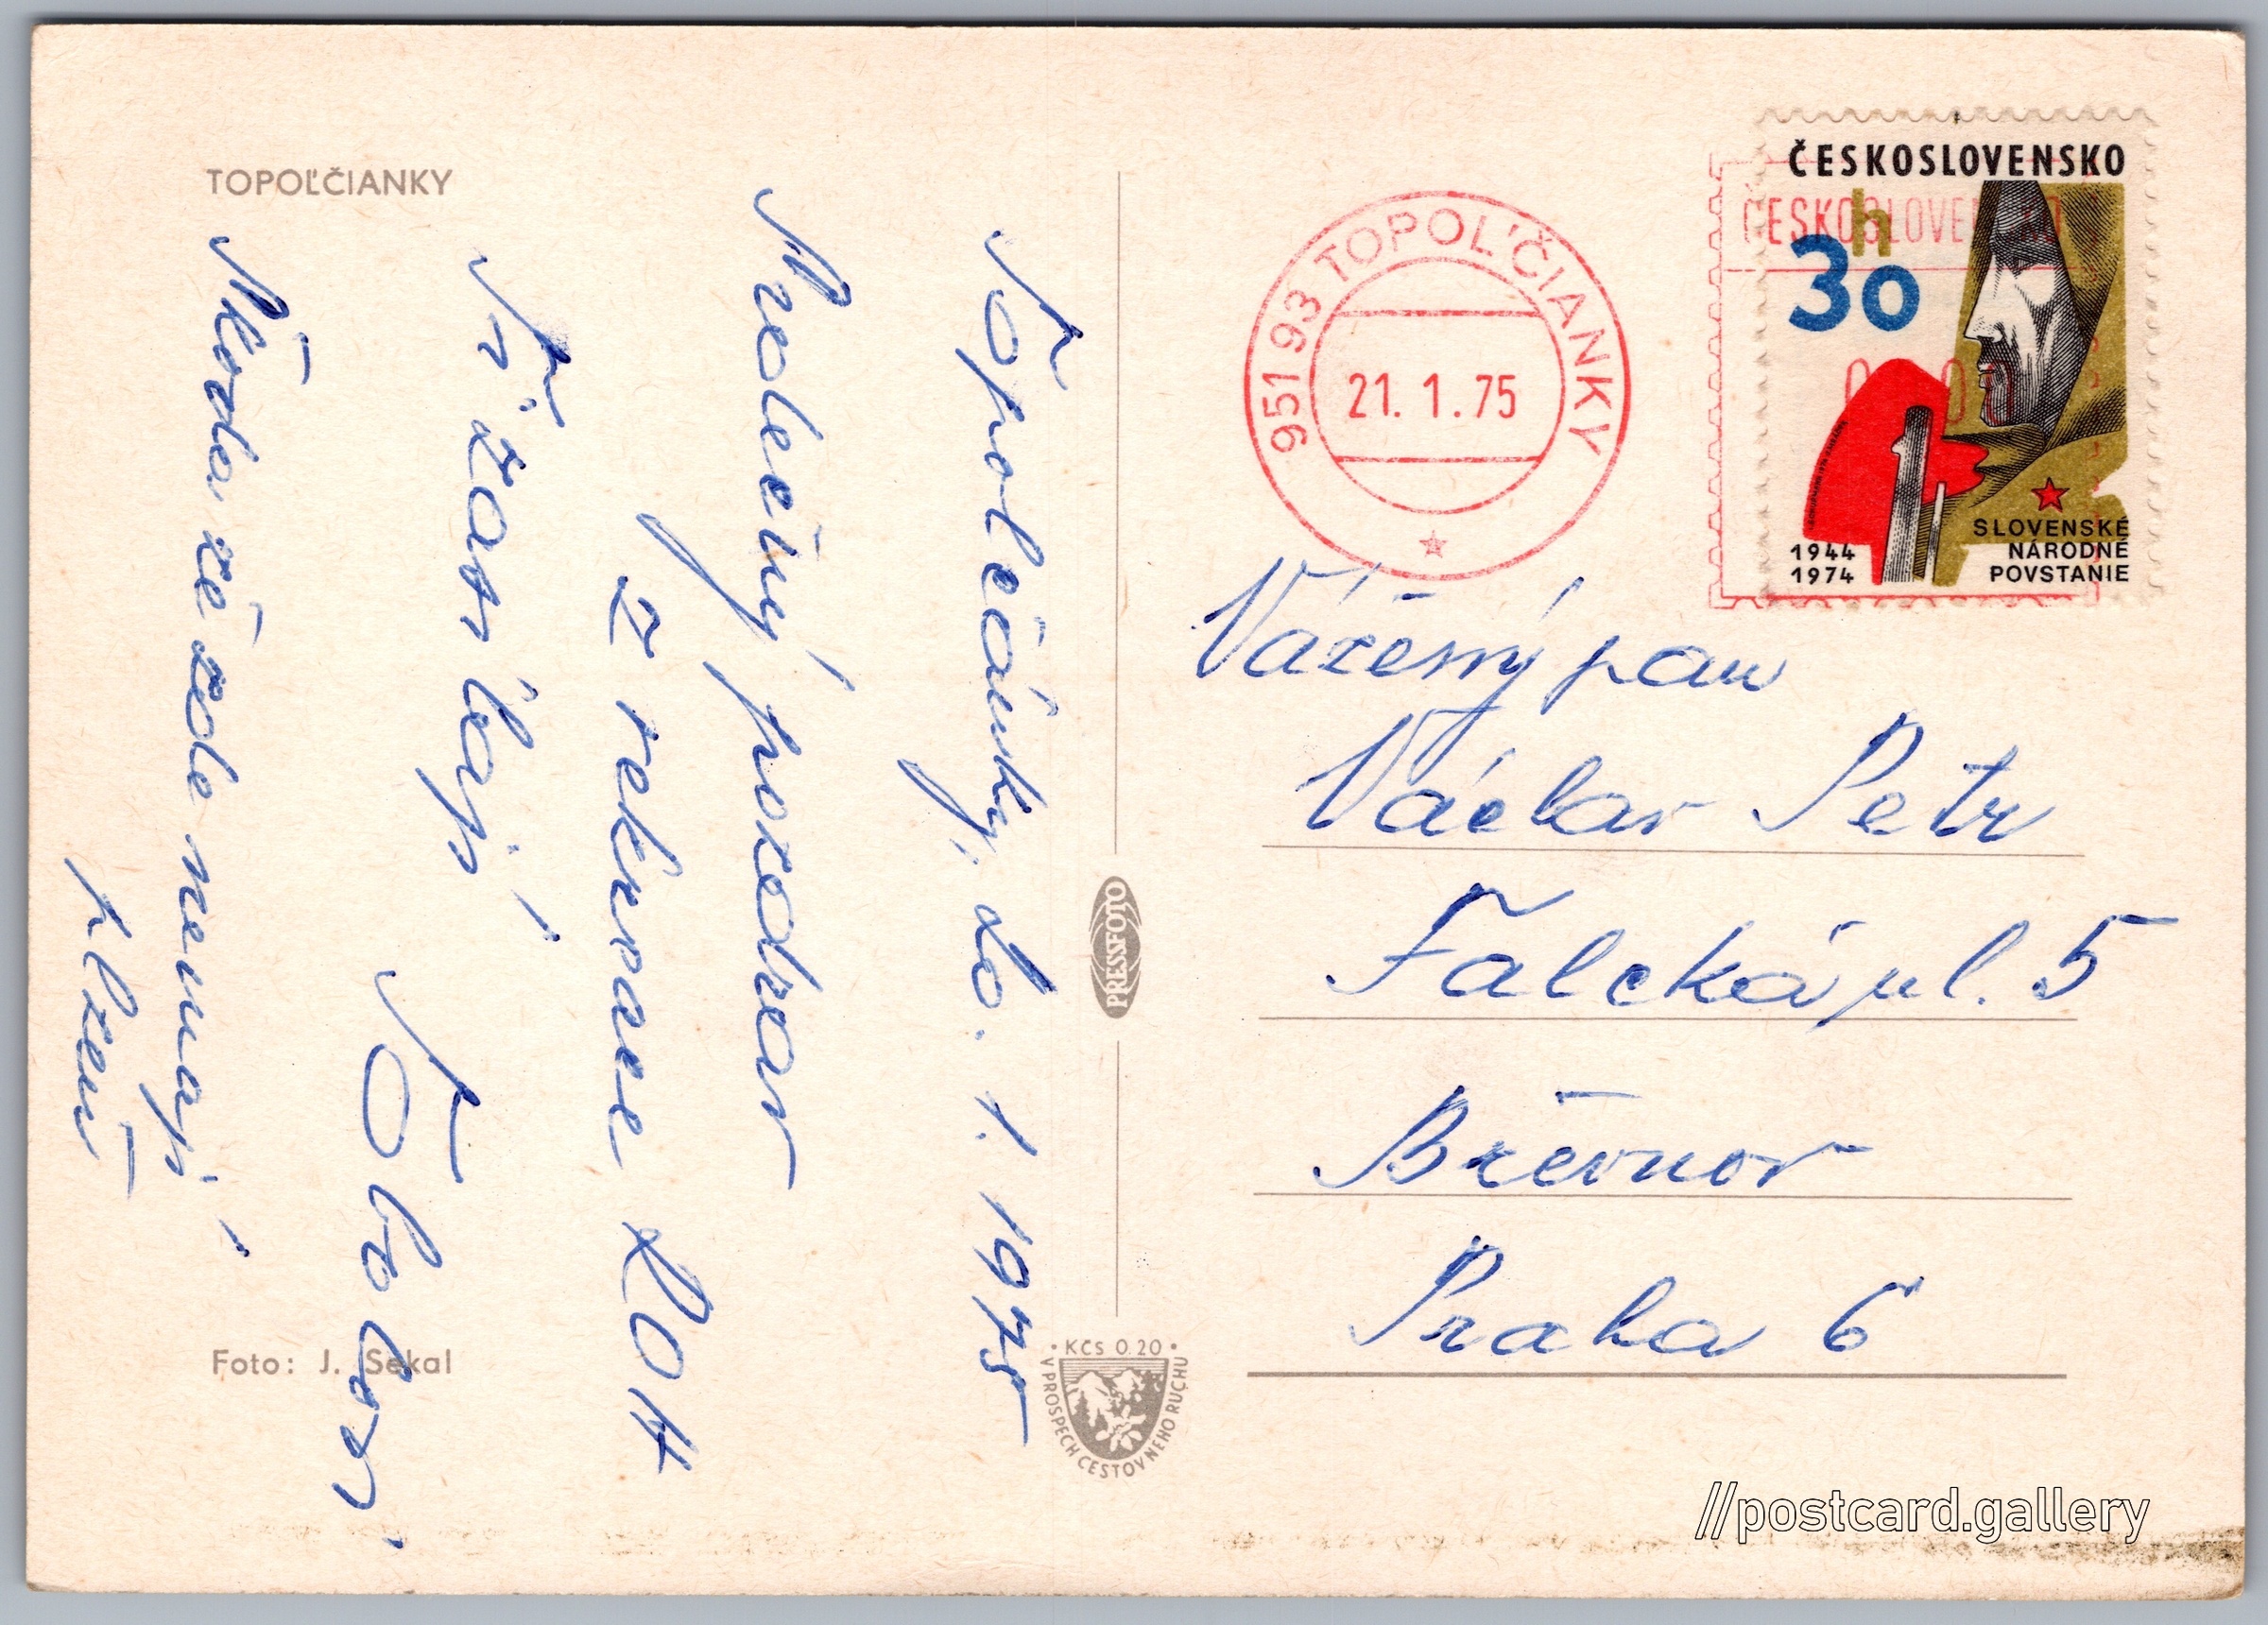 TOPOĽČIANKY
Topolčánky, 20. 1. 1975
Srdečný pozdrav
z rekreace ROH
Ti zasílají
Tobolovi.
Škoda, že zde nemají
plzeň
Foto: J. Sekal
PRESSFOTO
• KČS 0.20 •
V PROSPECH CESTOVNÉHO RUCHU
951 93 TOPOĽČIANKY
21. 1. 75
ČESKOSLOVENSKO
ČESKOSLOVENSKO
30 h
1944
1974
SLOVENSKÉ
NÁRODNÉ
POVSTANIE
Vážený pan
Václav Petr
Falcká ul. 5
Břevnov
Praha 6
//postcard.gallery